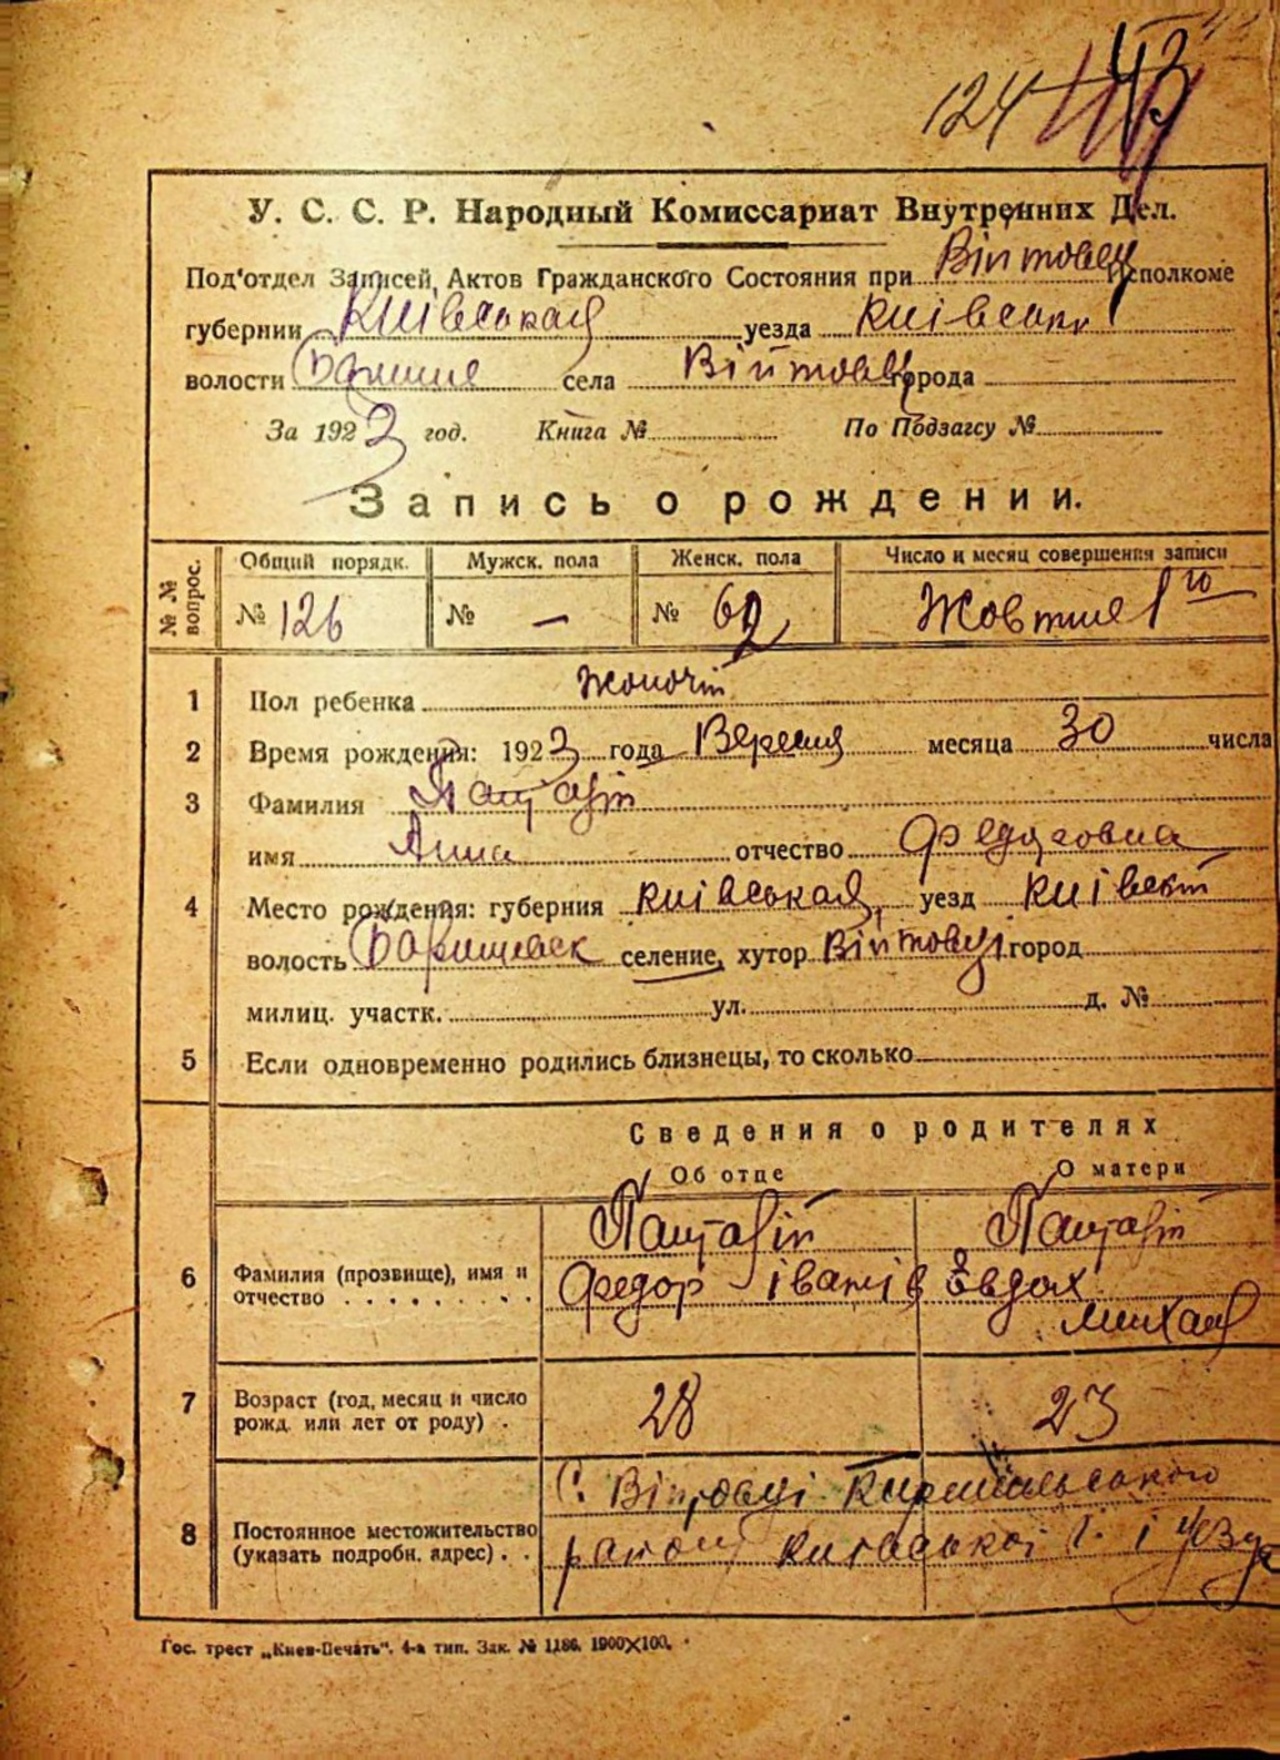 124 43
У. С. С. Р. Народный Комиссариат Внутренних Дел.
Под'отдел Записей Актов Гражданского Состояния при Війтовец Исполкоме
губернии Київськая уезда Київськ
волости села Війтовц города
За 1923 год. Книга № По Подзагсу №
Запись о рождении.
№№ вопрос. Общий порядк. Мужск. пола Женск. пола Число и месяц совершения записи
№ 126 № — № 62 Жовтня 1го
1 Пол ребенка
2 Время рождения: 1923 года Вересня месяца 30 числа
3 Фамилия
имя Анна отчество Федоровна
4 Место рождения: губерния Київськая уезд Київськ
волость Баришевск селение, хутор Війтовці город
милиц. участк. ул. д. №
5 Если одновременно родились близнецы, то сколько
Сведения о родителях
Об отце О матери
6 Фамилия (прозвище), имя и
отчество
Федор Іванів Євдох
Михай
7 Возраст (год, месяц и число
рожд. или лет от роду) 28 23
С. Війтовці
8 Постоянное местожительство
(указать подробн. адрес)
району Київської Г. і уезду
Гос. трест „Киев-Печать". 4-я тип. Зак. № 1186. 1900×100.